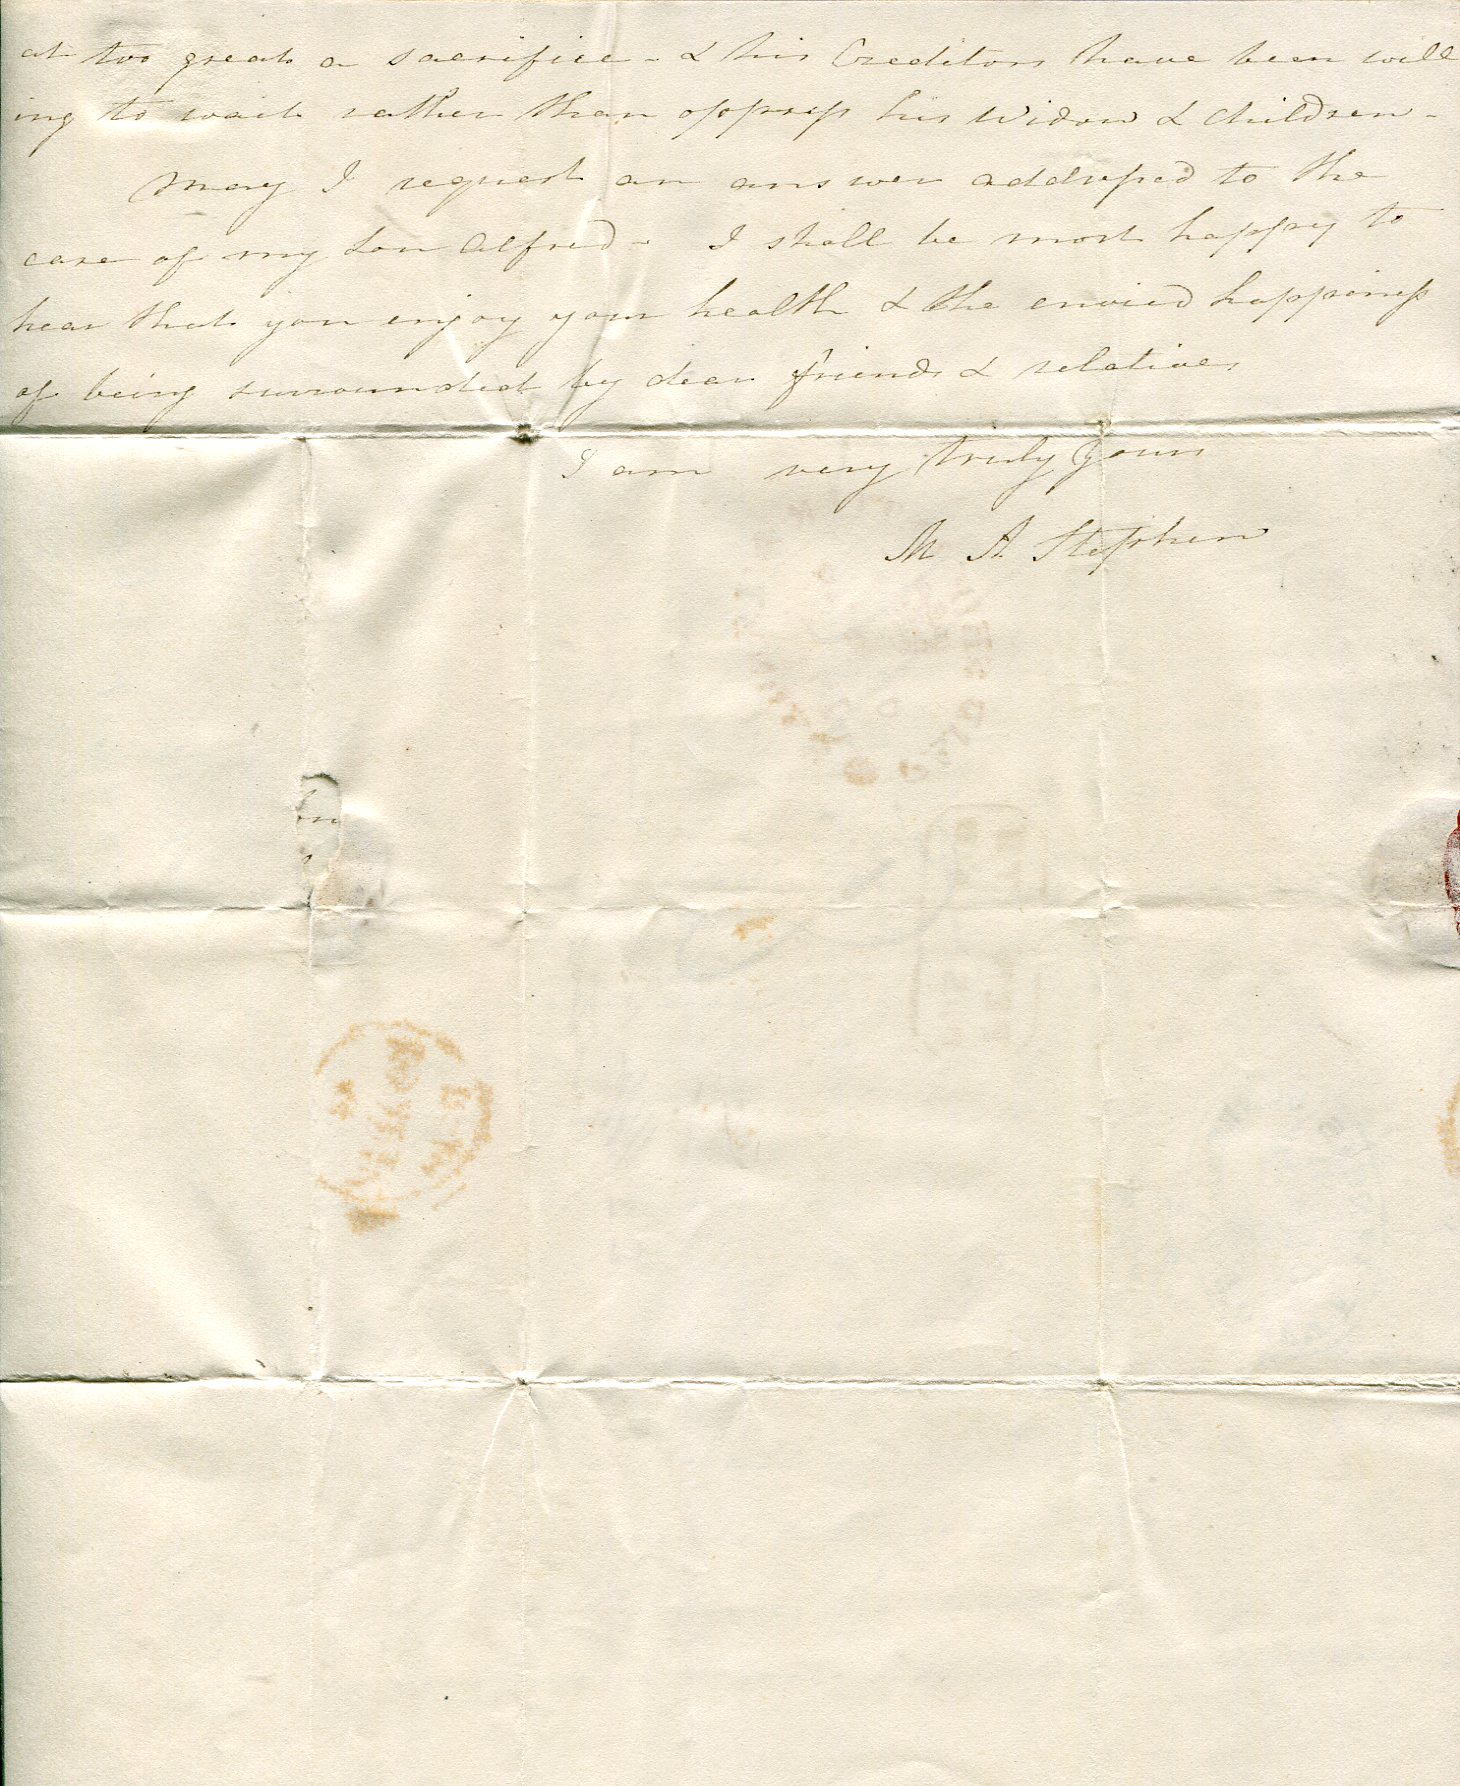 at too great a sacrifice - & his Creditors have been will
ing to wait rather than oppress his Widow & Children -
May I request an answer addressed to the
care of my Son Alfred - I shall be most happy to
hear that you enjoy your health & the envied happiness
of being surrounded by dear friends & relatives
I am very truly yours
M A Stephen